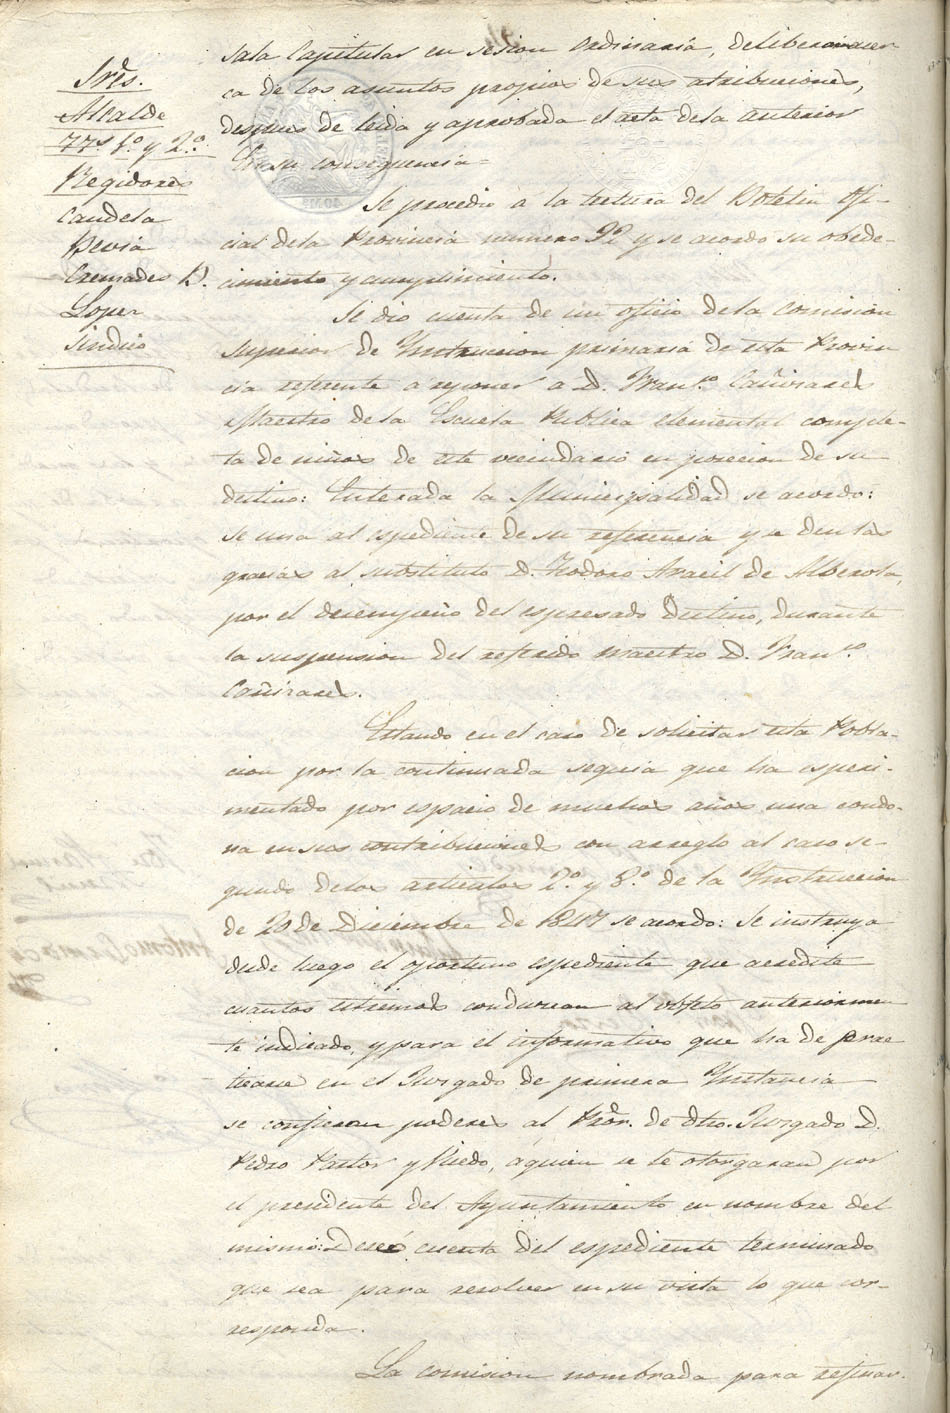 Sres.
Alcalde
TTes 1.º y 2.º
Regidores
Candela
Devia
Cremades D.
Loper
Sindico
Sala Capitular en sesion ordinaria, deliberar acer
ca de los asuntos propios de sus atribuciones,
despues de leida y aprobada el acta dela anterior
En su consequencia=
Se procedio a la lectura del Boletin Ofi-
cial dela Provincia numero 92 y se acordo su obede-
cimiento y cumplimiento.
Se dio cuenta de un oficio dela comision
superior de Ynstruccion primaria de esta Provin
cia referente a reponer a D. Fran.co Cañizares
Maestro de la Escuela Publica elemental comple-
ta de niños de este vecindario en posecion de su
destino: Enterada la Municipalidad se acordo:
se una al espediente de su referencia y se den las
gracias al substituto D. Teodoro Aracil de Alberola,
por el desempeño del espresado destino, durante
la suspension del referido maestro D. Fran.co
Cañizares.
Estando en el caso de solicitar esta Pobla-
cion por la continuada sequia que ha esperi-
mentado por espacio de muchos años una condo-
na en sus contribuciones con arreglo al caso se-
gundo delos articulos 2.º y 8.º de la Ynstruccion
de 20 de Diciembre de 1847 se acordo: Se instruya
desde luego el oportuno espediente que acredite
cuantos estremos conduzcan al objeto anteriormen
te indicado, y para el informativo que ha de prac
ticarse en el Jurgado de primera Ynstancia
se confieran poderes al Pror. de dho. Jurgado D.
Pedro Pastor y Pùedo, aquien se le otorgaran por
el presidente del Ayuntamiento en nombre del
mismo: Dese cuenta del espediente terminado
que sea para resolver en su vista lo que cor-
responda.
La comision nombrada para refinar.